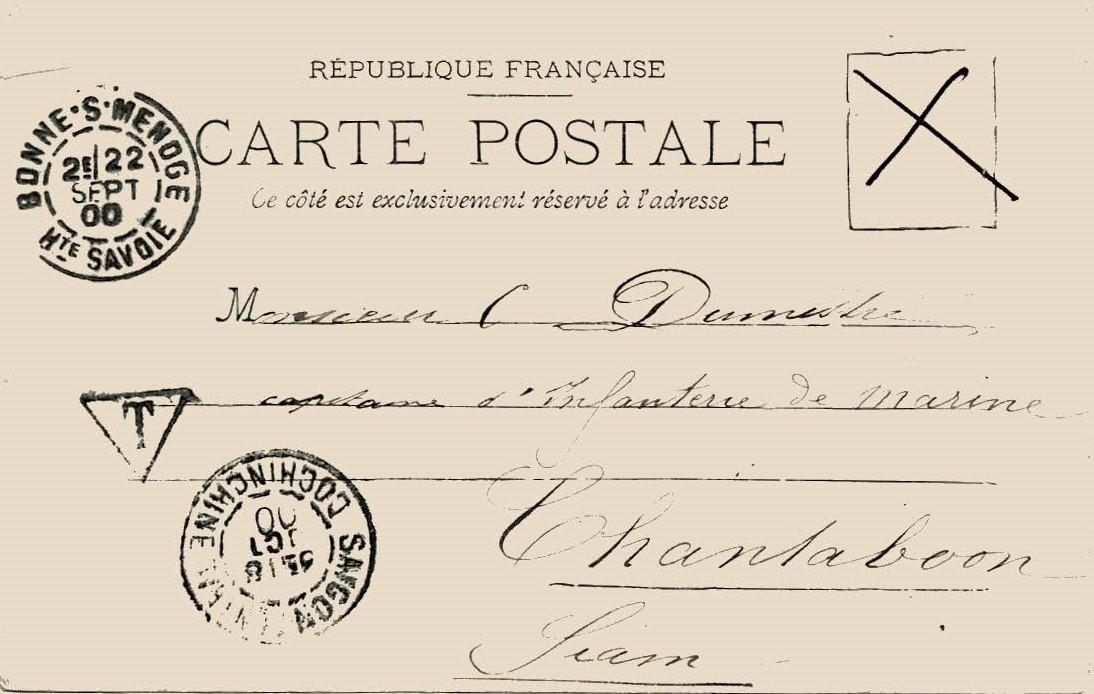 RÉPUBLIQUE FRANÇAISE
CARTE POSTALE
Ce côté est exclusivement réservé à l'adresse
BONNE-S-MENOGE
2E 22
SEPT
00
HTE SAVOIE
Monsieur C Dumestre
capitaine d'Infanterie de Marine
T
Chantaboon
Siam
SAIGON
COCHINCHINE
5E 18
OCT
00